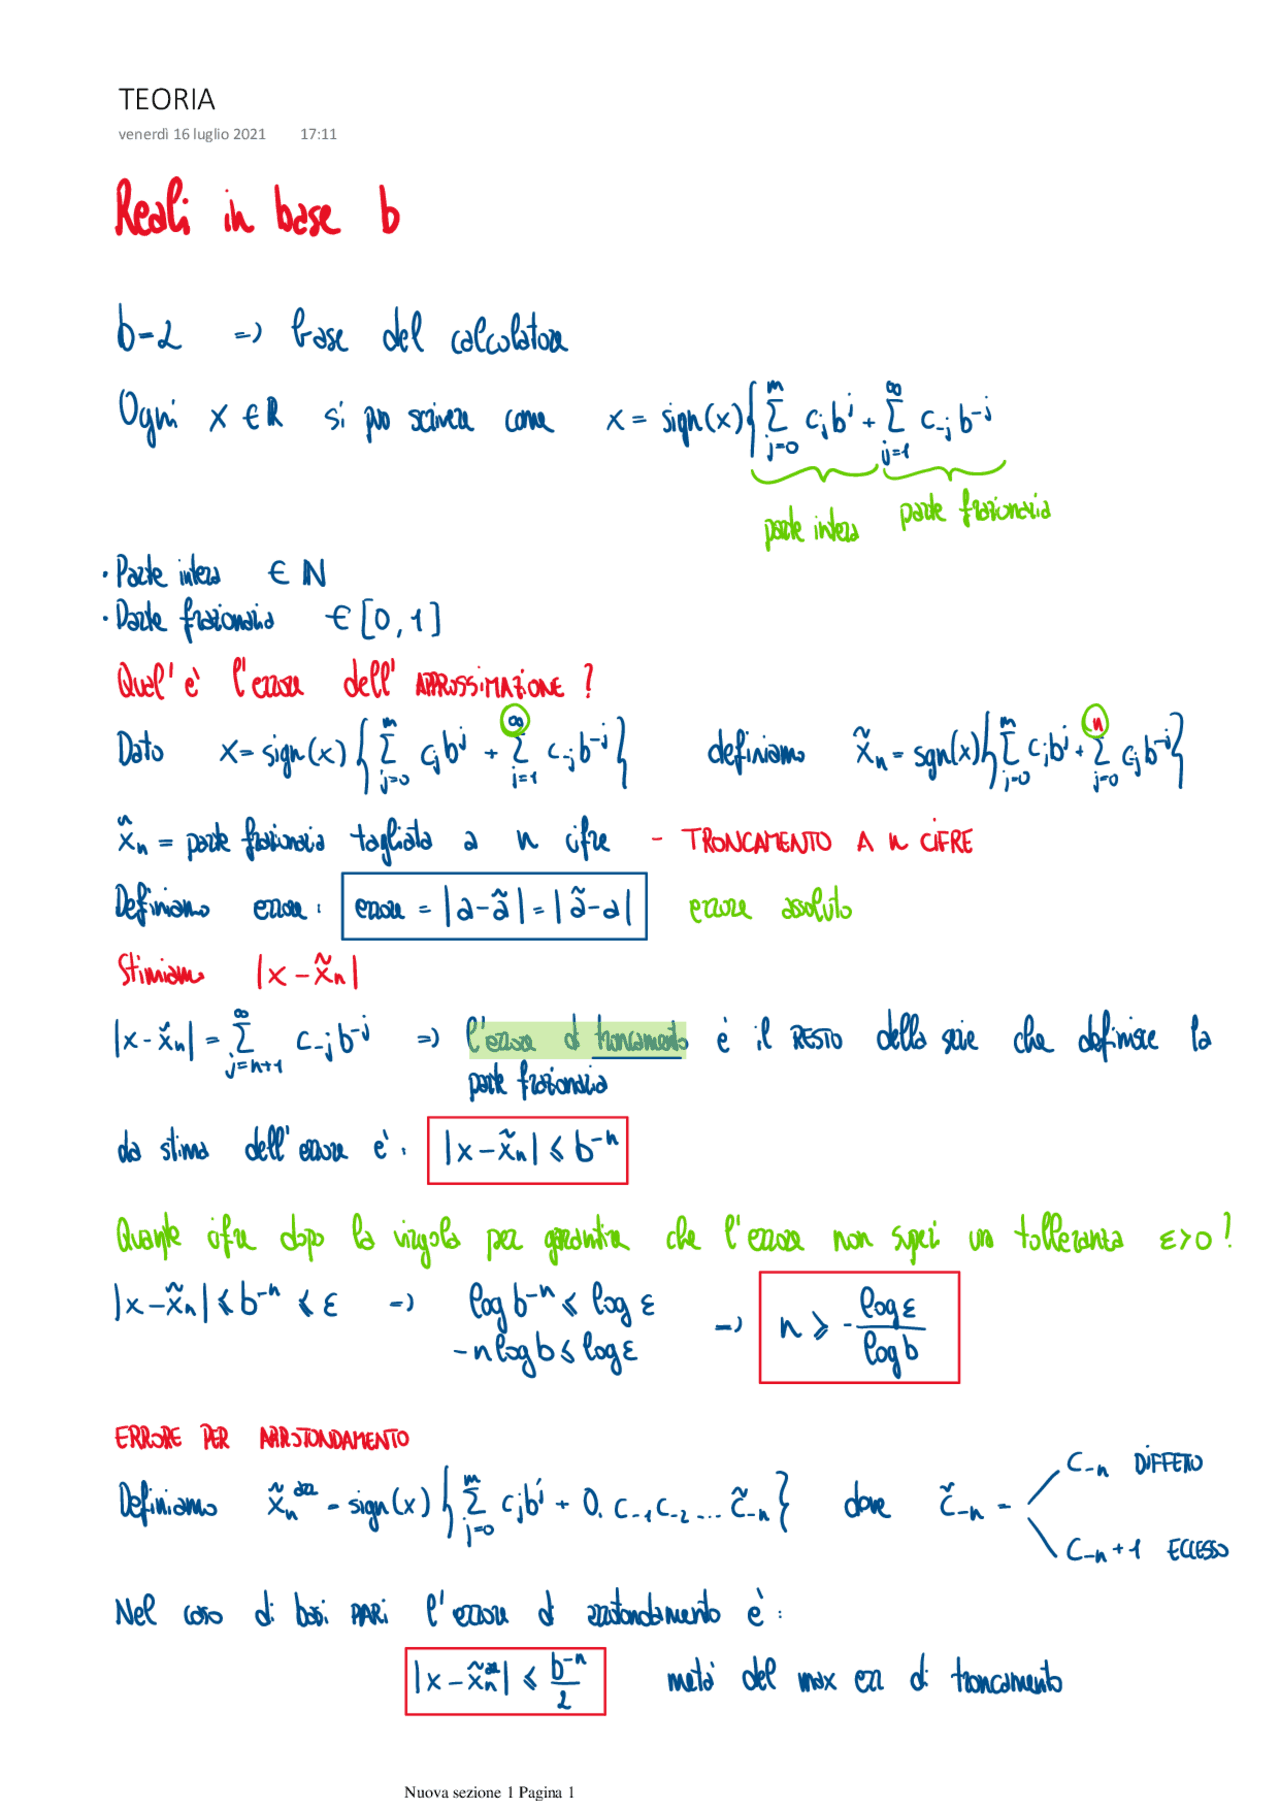 TEORIA
venerdì 16 luglio 2021 17:11
Reali in base b
b=2 => base del calcolatore
Ogni x ∈ R si può scrivere come x = sign(x){ Σ_{j=0}^{m} c_j b^j + Σ_{j=1}^{∞} c_{-j} b^{-j}
parte intera parte frazionaria
· Parte intera ∈ N
· Parte frazionaria ∈ [0,1]
Qual'è l'errore dell'APPROSSIMAZIONE ?
Dato x = sign(x) { Σ_{j=0}^{m} c_j b^j + Σ_{j=1}^{∞} c_{-j} b^{-j} } definiamo x̃_n = sgn(x){ Σ_{j=0}^{m} c_j b^j + Σ_{j=0}^{n} c_j b^{-j} }
x̃_n = parte frazionaria tagliata a n cifre - TRONCAMENTO A n CIFRE
Definiamo errore : errore = |a-ã| = |ã-a| errore assoluto
Stimiamo |x - x̃_n|
|x - x̃_n| = Σ_{j=n+1}^{∞} c_{-j} b^{-j} => l'errore di troncamento è il RESTO della serie che definisce la
parte frazionaria
La stima dell'errore è : |x - x̃_n| ≤ b^{-n}
Quante cifre dopo la virgola per garantire che l'errore non superi una tolleranza ε>0 ?
|x - x̃_n| ≤ b^{-n} ≤ ε => log b^{-n} ≤ log ε => n ≥ - log ε / log b
-n log b ≤ log ε
ERRORE PER ARROTONDAMENTO
Definiamo x̃_n^{arr} = sign(x) { Σ_{j=0}^{m} c_j b^j + 0. c_{-1} c_{-2} ... c̃_{-n} } dove c̃_{-n} = c_{-n} DIFFETO
c_{-n}+1 ECCESSO
Nel caso di basi PARI l'errore di arrotondamento è :
|x - x̃_n^{arr}| ≤ b^{-n} / 2 metà del max err di troncamento
Nuova sezione 1 Pagina 1